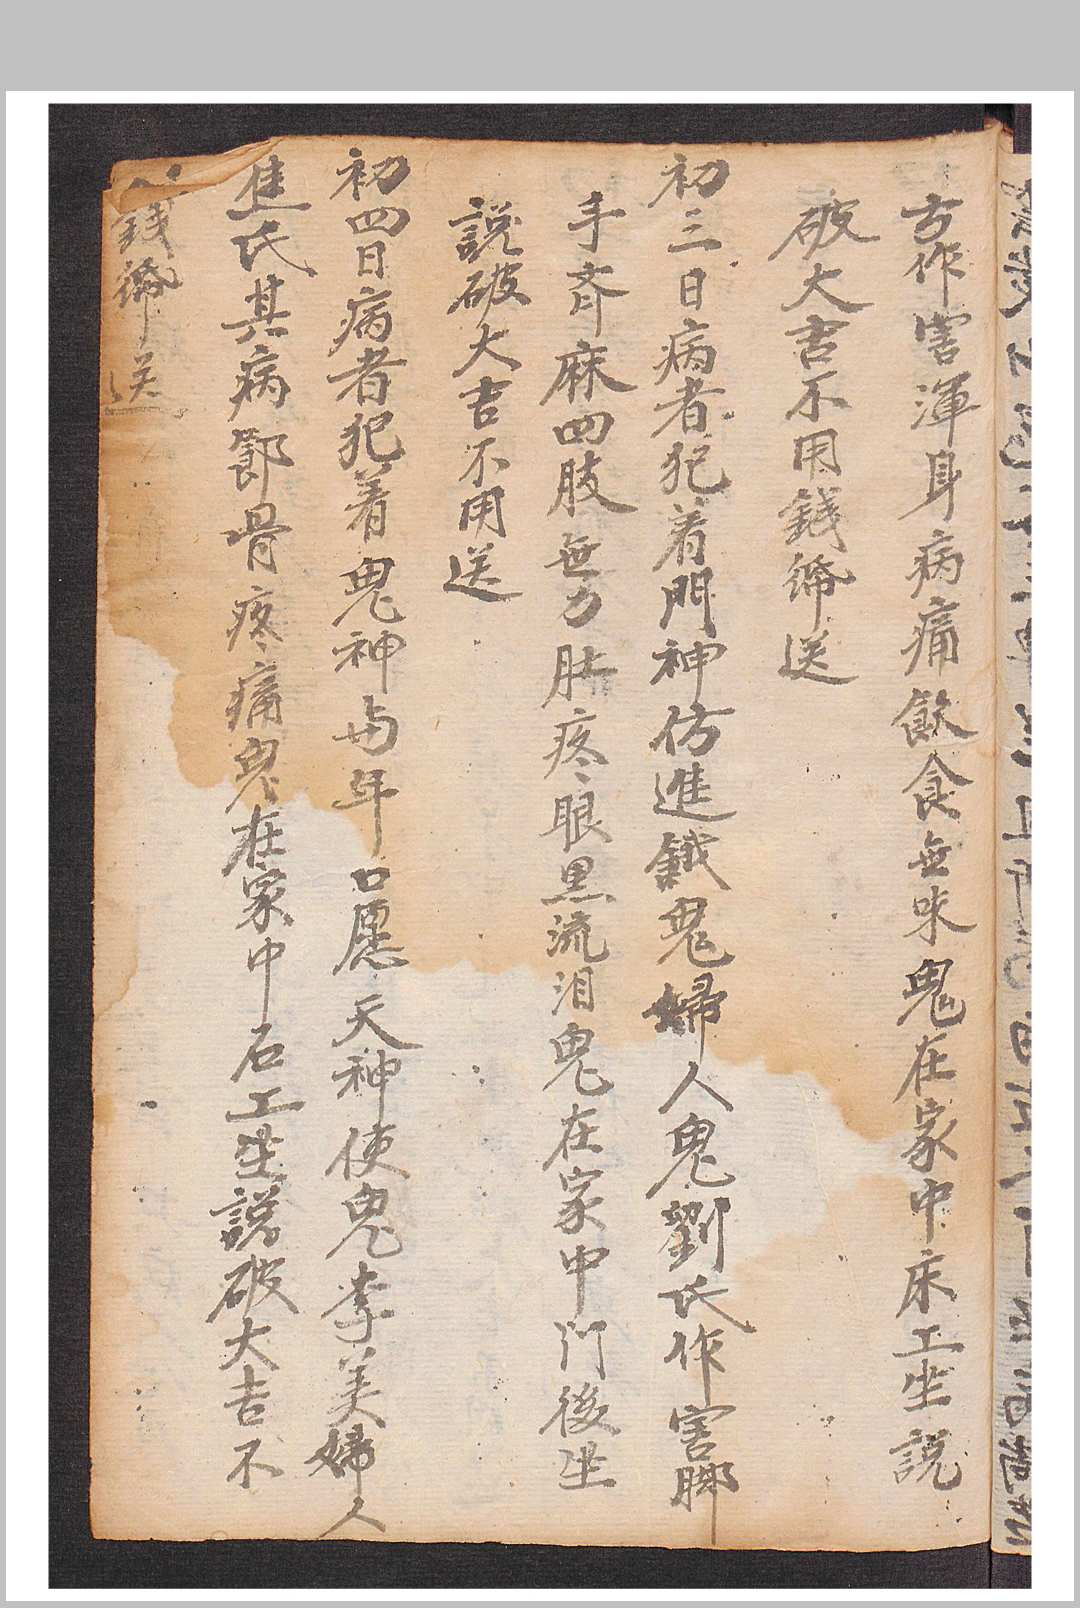 方作害渾身病痛飲食無味鬼在家中床工坐説
破大吉不用錢送
初三日病者犯着門神仿進鐡鬼婦人鬼劉氏作害脚
手斉麻四肢無力肚疼眼黒流泪鬼在家中门後坐
説破大吉不用送
初四日病者犯着鬼神与年口愿天神使鬼李美婦人
焦氏其病節骨疼痛鬼在家中石工坐說破大吉不
錢送